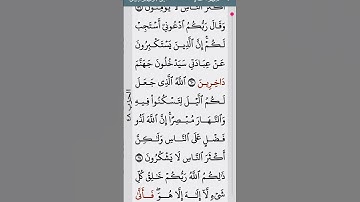 أَكْثَرَ ٱلنَّاسِ لَا يُؤْمِنُونَ
وَقَالَ رَبُّكُمُ ٱدْعُونِىٓ أَسْتَجِبْ
لَكُمْ إِنَّ ٱلَّذِينَ يَسْتَكْبِرُونَ
عَنْ عِبَادَتِى سَيَدْخُلُونَ جَهَنَّمَ
دَاخِرِينَ ٱللَّهُ ٱلَّذِى جَعَلَ
لَكُمُ ٱلَّيْلَ لِتَسْكُنُوا۟ فِيهِ
وَٱلنَّهَارَ مُبْصِرًا إِنَّ ٱللَّهَ لَذُو
فَضْلٍ عَلَى ٱلنَّاسِ وَلَٰكِنَّ
أَكْثَرَ ٱلنَّاسِ لَا يَشْكُرُونَ
ذَٰلِكُمُ ٱللَّهُ رَبُّكُمْ خَالِقُ كُلِّ
شَىْءٍ لَّآ إِلَٰهَ إِلَّا هُوَ فَأَنَّىٰ